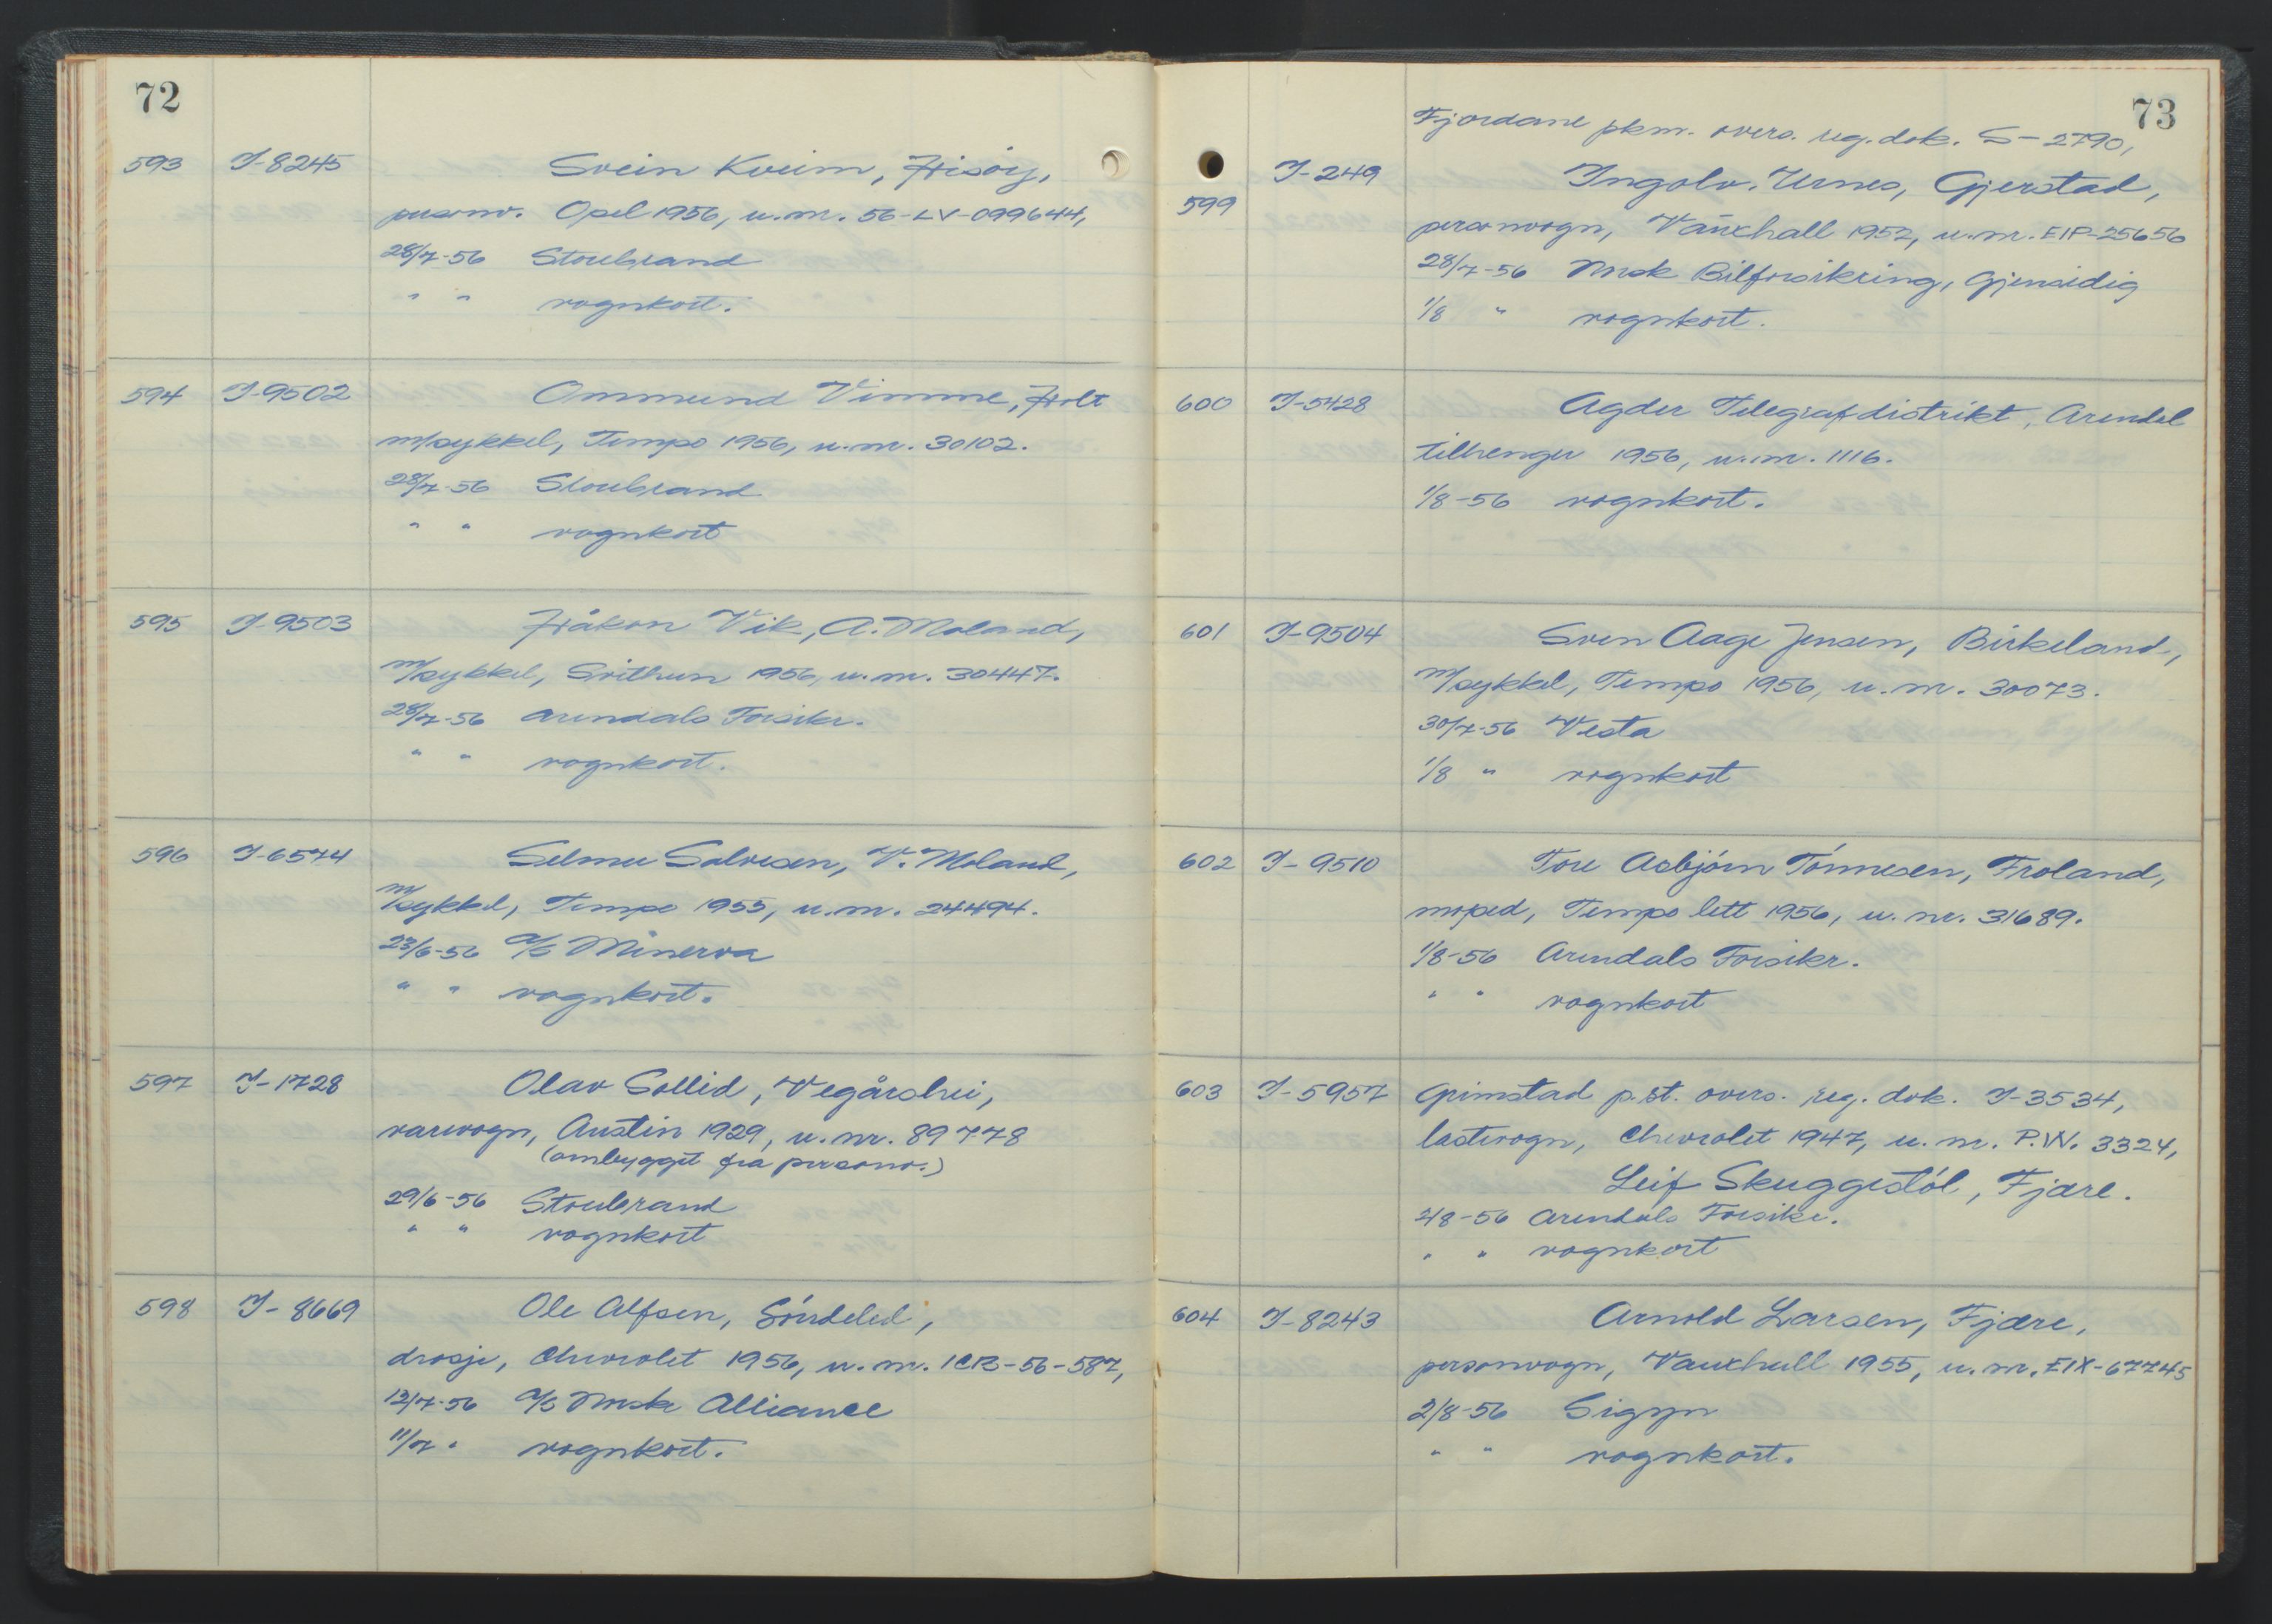 72
593 I-8245 Svein Kveim, Hisöy,
personv. Opel 1956, u.nr. 56-LV-099644,
28/7-56 Storebrand
" " vognkort.
594 I-9502 Ommund Vimme, Holt
m/sykkel, Tempo 1956, u.nr. 30102.
28/7-56 Storebrand
" " vognkort
595 I-9503 Håkon Vik, A. Moland,
m/sykkel, Svithun 1956, u.nr. 30447.
28/7-56 Arendals Forsikr.
" " vognkort.
596 I-6574 Selmer Salvesen, V. Moland,
m/sykkel, Tempo 1955, u.nr. 24494.
23/6-56 A/S Minerva
" " vognkort.
597 I-1728 Olav Sollid, Vegårshei,
varevogn, Austin 1929, u.nr. 89778
(ombygget fra personv.)
29/6-56 Storebrand
" " vognkort
598 I-8669 Ole Alfsen, Söndeled,
drosje, Chevrolet 1956, u.nr. 1CR-56-587,
12/7-56 A/S Norske Alliance
11/7 " vognkort.
73
Fjordane pkm. overs. reg.dok. S-2790,
599 I-249 Ingolv. Urnes, Gjerstad,
personvogn, Vauxhall 1952, u.nr. EIP-25656
28/7-56 Norsk Bilforsikring, Gjensidig
1/8 " vognkort.
600 I-5428 Agder Telegrafdistrikt, Arendal
tilhenger 1956, u.nr. 1116.
1/8-56 vognkort.
601 I-9504 Sven Aage Jensen, Birkeland,
m/sykkel, Tempo 1956, u.nr. 30073.
30/7-56 Vesta
1/8 " vognkort
602 I-9510 Tore Asbjörn Tönnesen, Froland,
moped, Tempo lett 1956, u.nr. 31689.
1/8-56 Arendals Forsikr.
" " vognkort
603 I-5957 Grimstad p.st. overs. reg. dok. I-3534,
lastevogn, Chevrolet 1947, u.nr. P.W. 3324,
Leif Skuggestöl, Fjære.
2/8-56 Arendals Forsikr.
" " vognkort
604 I-8243 Arnold Larsen, Fjære,
personvogn, Vauxhall 1955, u.nr. EIX-67745
2/8-56 Sigyn
" " vognkort.